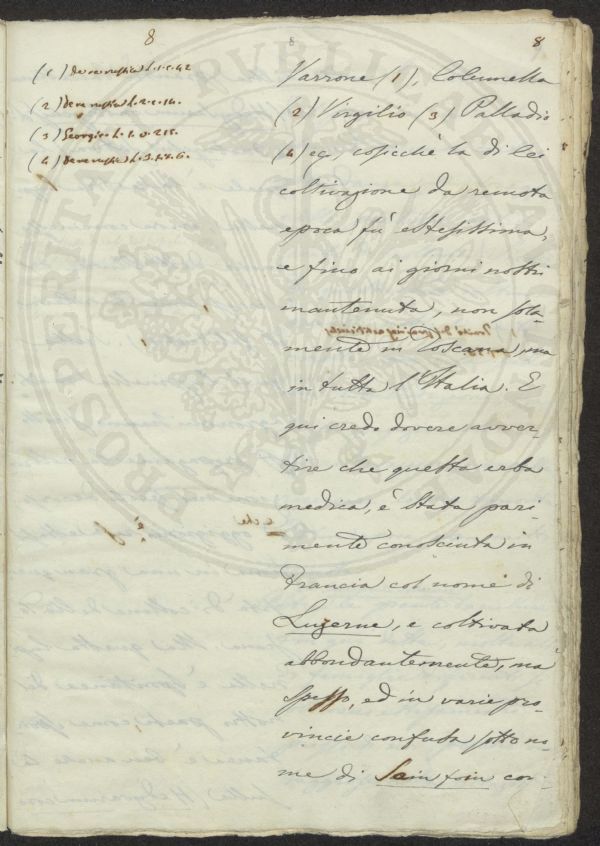 8
8
(1) de re rustica l. 1. c. 42
(2) de re rustica l. 2. c. 14.
(3) Georgic. l. 1. v. 215.
(4) de re rustica l.
Varrone (1), Columella
(2) Virgilio (3) Palladio
(4) cosicchè la di lei
coltivazione da remota
epoca fù estesissima,
e fino ai giorni nostri
mantenuta, non sola-
mente in Toscana, ma
in tutta l'Italia. E
qui credo dovere avver-
tire che questa erba
medica, è stata pari-
mente conosciuta in
Francia col nome di
Luzerne, e coltivata
abbondantemente, ma
spesso, ed in varie pro-
vincie confusa sotto no-
me di Sain foin cor-